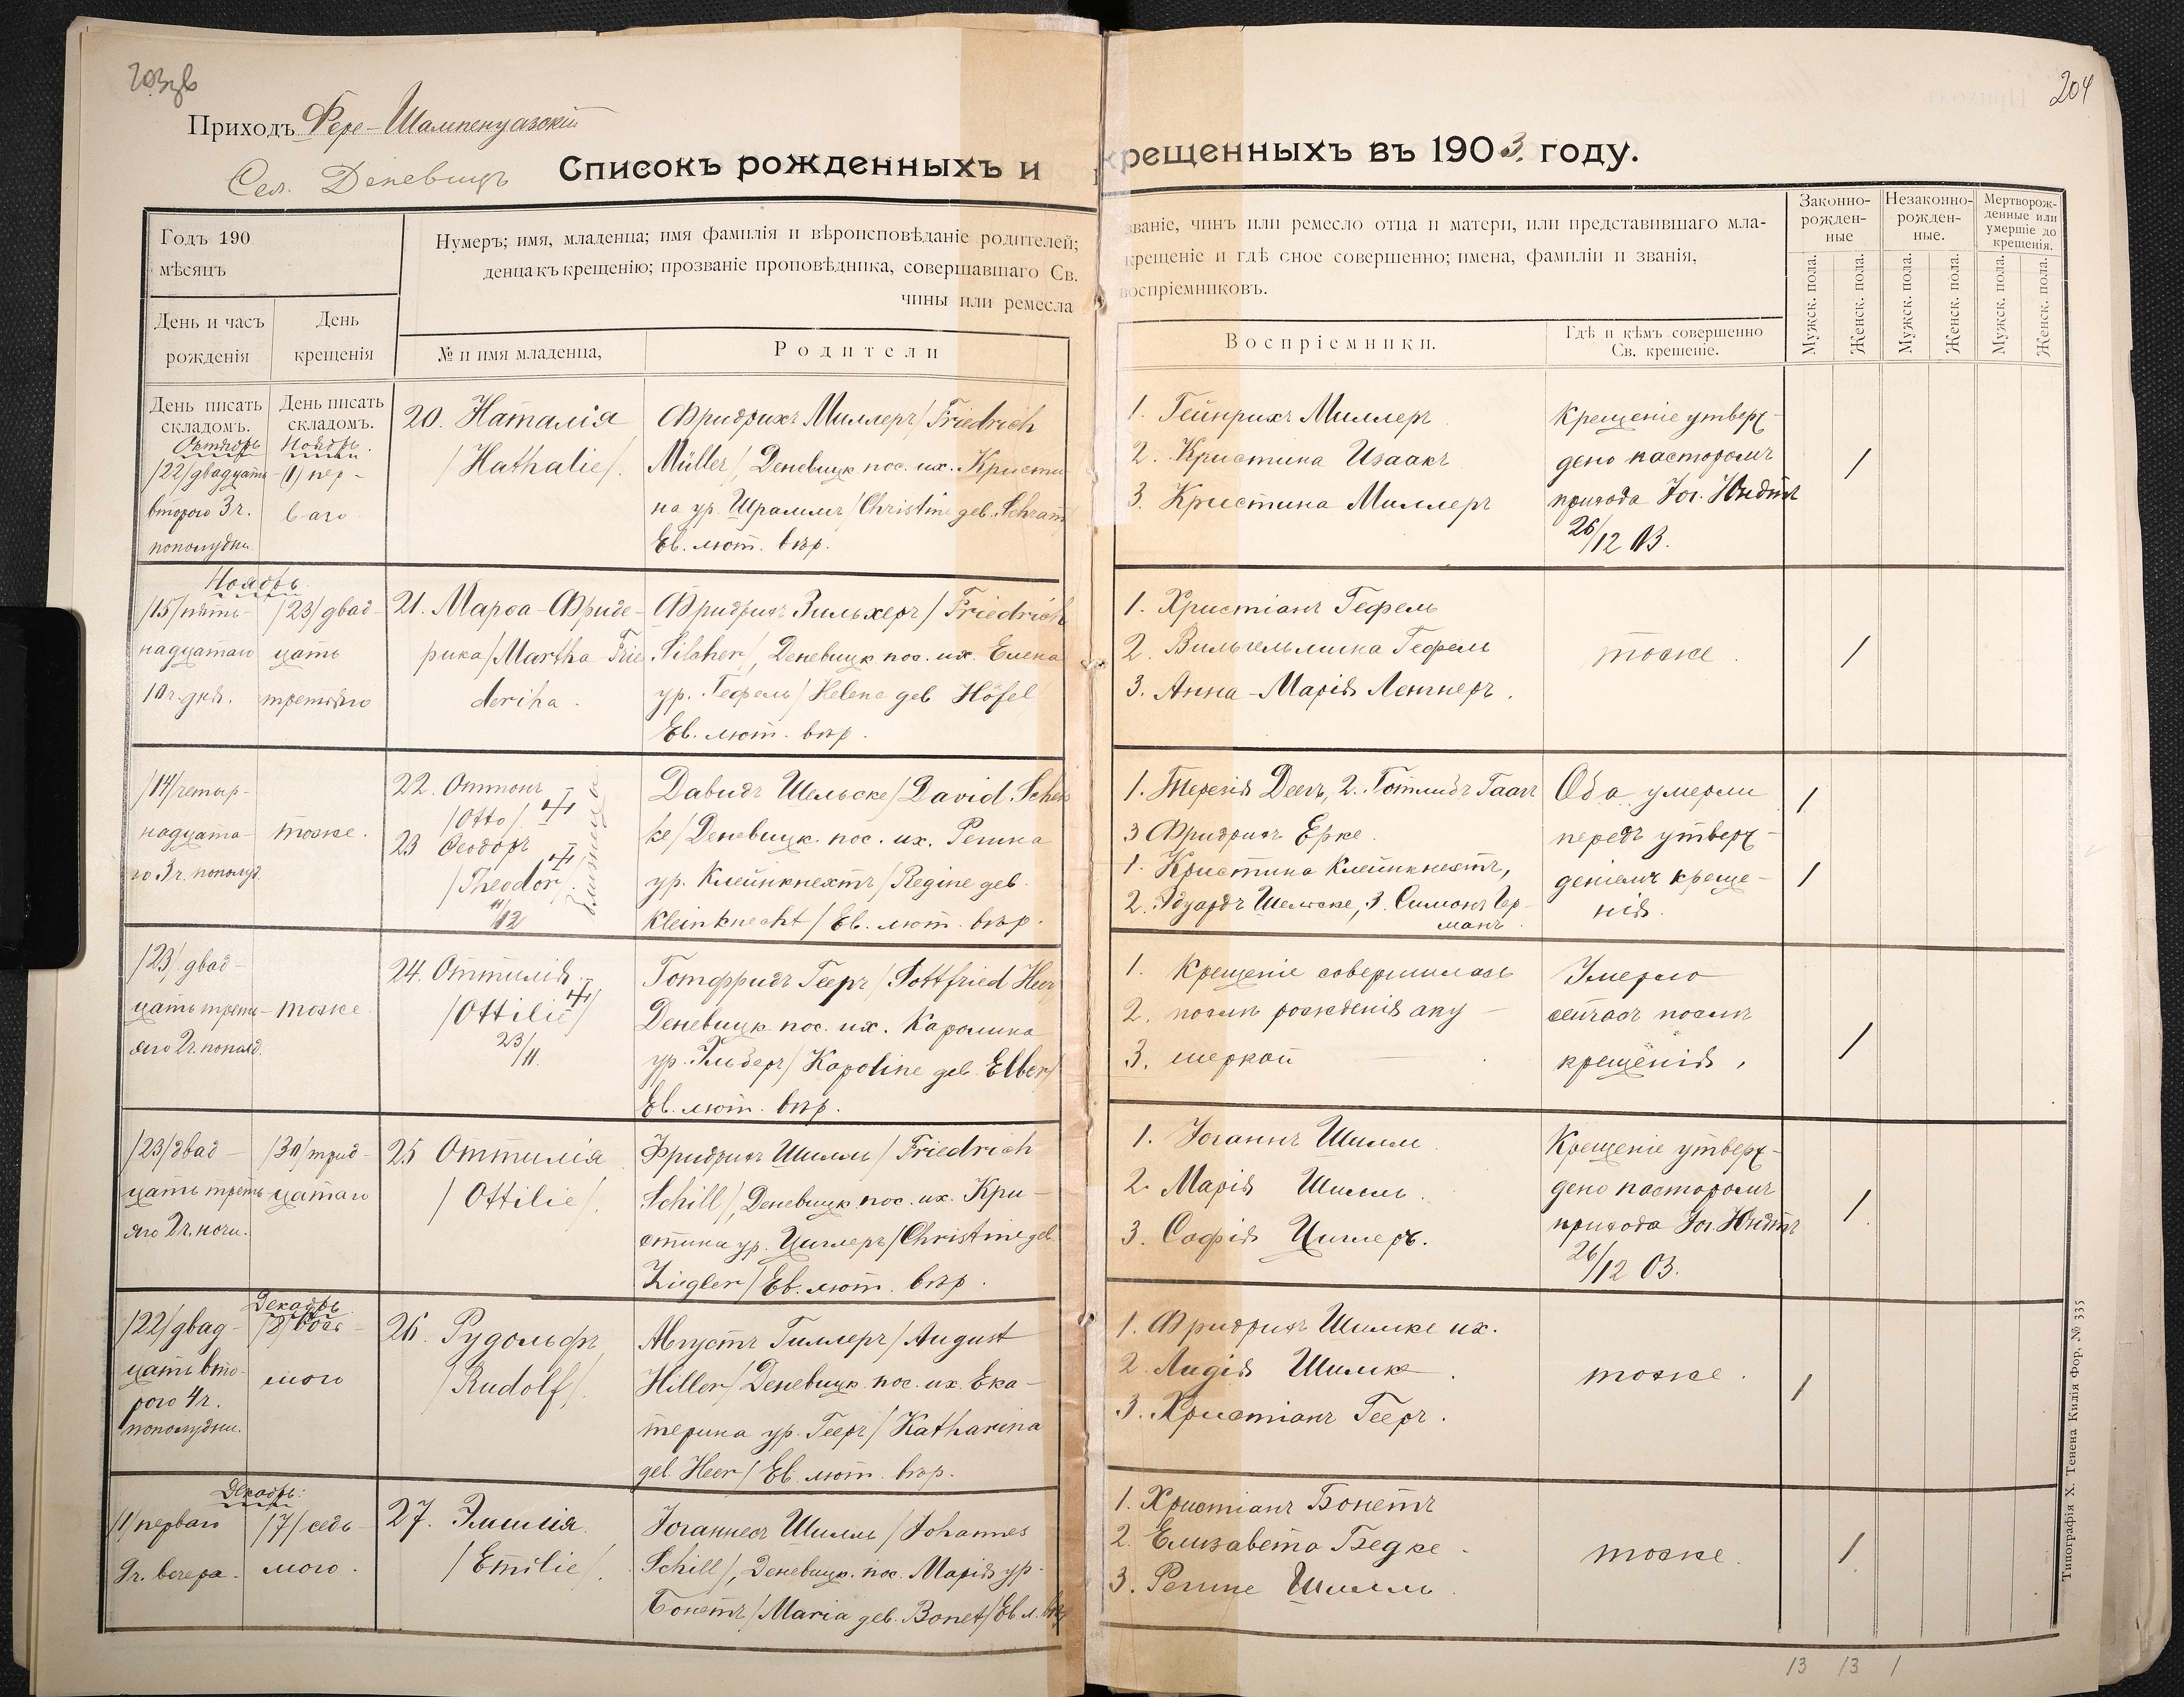 204
Приходъ Фере-Шампенуазскій
Сел. Деневицъ
Списокъ рожденныхъ и крещенныхъ въ 1903 году.
Годъ 190
мѣсяцъ
Нумеръ; имя, младенца; имя фамилія и вѣроисповѣданіе родителей;
денца къ крещенію; прозваніе проповѣдника, совершавшаго Св.
чины или ремесла
званіе, чинъ или ремесло отца и матери, или представившаго мла-
крещеніе и гдѣ оное совершенно; имена, фамиліи и званія,
воспріемниковъ.
Законно-
рожден-
ные
Незаконно-
рожден-
ные.
Мертворож-
денные или
умершіе до
крещенія.
Мужск. пола.
Женск. пола.
Мужск. пола.
Женск. пола.
Мужск. пола.
Женск. пола.
День и часъ
рожденія
День
крещенія
№ и имя младенца,
Родители
Воспріемники.
Гдѣ и кѣмъ совершенно
Св. крещеніе.
День писать
складомъ.
День писать
складомъ.
Октябрь
/22/ двадцать
второго 3 ч.
пополудни
Ноябрь.
(1) пер-
ваго
20. Наталія
/Nathalie/.
Фридрихъ Миллеръ /Friedrich
Müller/, Деневицк. пос. их. Кристи-
на ур. Шраммъ /Christine geb. Schram
Ев. лют. вѣр.
1. Гейнрихъ Миллеръ
2. Кристина Изаакъ
3. Кристина Миллеръ
Крещеніе утверж-
дено пасторомъ
прихода Іог. Юндтъ
26/12 03.
/
Ноябрь.
/15/ пять-
надцатаго
10 ч. дня.
/23/ двад-
цать
третьяго
21. Марѳа-Фриде-
рика /Martha Frie
derika.
Фридрихъ Зильхеръ /Friedrich
Silcher/, Деневицк. пос. их. Елена
ур. Гефель /Helene geb Höfel
Ев. лют. вѣр.
1. Христіанъ Гефель
2. Вильгельмина Гефель
3. Анна-Марія Ленгнеръ.
тоже.
/
/14/ четыр-
надцата-
го 3 ч. пополуд.
тоже.
22. Оттонъ
/Otto/.
23 Ѳеодоръ
/Theodor/.
близнецы
11/12
Давидъ Шельске /David Schel
ke/ Деневицк. пос. их. Регина
ур. Клейнкнехтъ /Regine geb.
Kleinknecht/ Ев. лют. вѣр.
1. Терезія Деегъ, 2. Готлибъ Гаагъ
3 Фридрихъ Ерке.
1. Кристина Клейнкнехтъ,
2. Эдуардъ Шельске, 3. Симонъ Гер-
манъ.
Оба умерли
передъ утверж-
деніемъ креще-
нія.
/
/
/23/ двад-
цать треть-
яго 2 ч. полд.
тоже
24. Оттилія.
/Ottilie/
23/11.
Готфридъ Гееръ /Gottfried Heer
Деневицк. пос. их. Каролина
ур. Эльберъ /Karoline geb. Elber/
Ев. лют. вѣр.
1. Крещеніе совершилось
2. послѣ рожденія аку-
3. шеркой
Умерло
сейчасъ послѣ
крещенія,
/
/23/ двад-
цать треть-
яго 2 ч. ночи.
/30/ трид-
цатаго
25 Оттилія
/Ottilie/.
Фридрихъ Шилль /Friedrich
Schill/, Деневицк. пос. их. Кри-
стина ур. Циглеръ /Christine geb.
Ziegler/ Ев. лют. вѣр.
1. Іоганнъ Шилль
2. Марія Шилль.
3. Софія Циглеръ.
Крещеніе утверж-
дено пасторомъ
прихода Іог. Юндтъ
26/12 03.
/
/22/ двад-
цать вто-
рого 4 ч.
пополудни.
Декабрь
/8/ вось-
мого
26. Рудольфъ
/Rudolf/.
Августъ Гиллеръ /August
Hiller/ Деневицк. пос. их. Ека-
терина ур. Гееръ /Katharina
geb. Heer/ Ев. лют. вѣр.
1. Фридрихъ Шилке их.
2. Лидія Шилке.
3. Христіанъ Гееръ.
тоже.
/
Декабрь:
/1/ перваго
9 ч. вечера.
/7/ седь-
мого.
27. Эмилія
/Emilie/.
Іоганнесъ Шилль /Johannes
Schill/, Деневицк. пос. Марія ур.
Бонетъ /Maria geb. Bonet/ Ев л. вѣр
1. Христіанъ Бонетъ
2. Елизавета Бедке.
3. Регине Шилль
тоже.
/
13 13 1
Типографія Х. Тенена Килія Фор. № 335